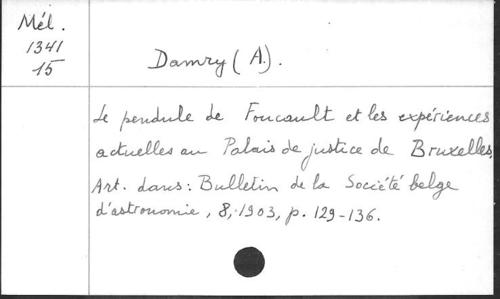 Mél.
1341
15
Damry (A.).
Le pendule de Foucault et les expériences
actuelles au Palais de justice de Bruxelles.
Art. dans : Bulletin de la Société belge
d'astronomie, 8, 1903, p. 129-136.